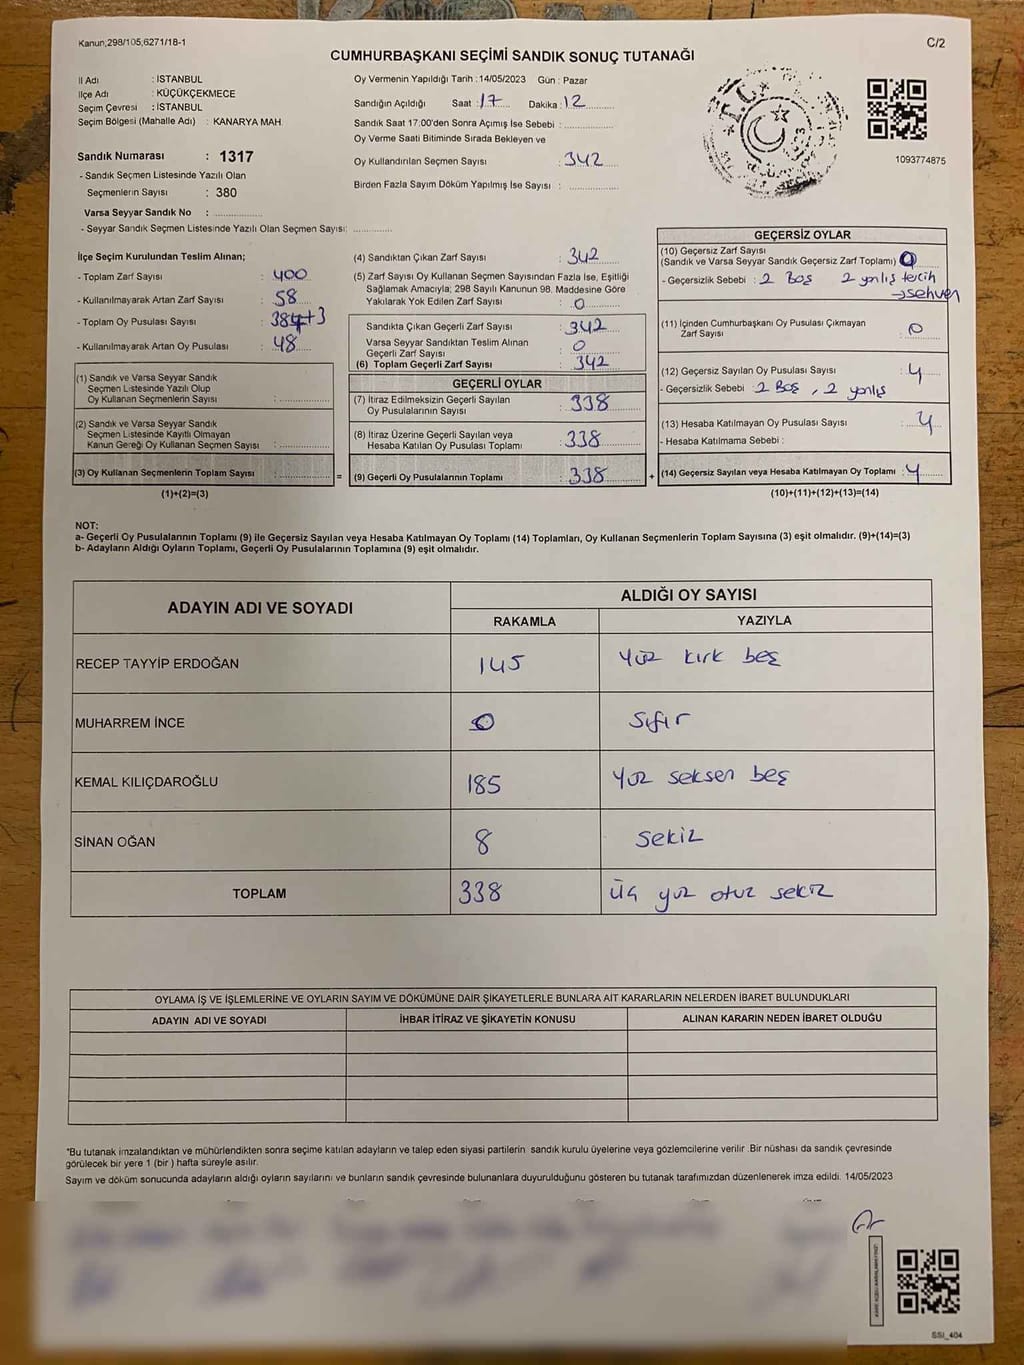 Kanun;298/105;6271/18-1
C/2
CUMHURBAŞKANI SEÇİMİ SANDIK SONUÇ TUTANAĞI
İl Adı : İSTANBUL
İlçe Adı : KÜÇÜKÇEKMECE
Seçim Çevresi : İSTANBUL
Seçim Bölgesi (Mahalle Adı) : KANARYA MAH.
Sandık Numarası : 1317
- Sandık Seçmen Listesinde Yazılı Olan
Seçmenlerin Sayısı : 380
Varsa Seyyar Sandık No :
- Seyyar Sandık Seçmen Listesinde Yazılı Olan Seçmen Sayısı:
Oy Vermenin Yapıldığı Tarih : 14/05/2023 Gün : Pazar
Sandığın Açıldığı Saat : 17 Dakika : 12
Sandık Saat 17:00'den Sonra Açımış İse Sebebi :
Oy Verme Saati Bitiminde Sırada Bekleyen ve
Oy Kullandırılan Seçmen Sayısı : 342
Birden Fazla Sayım Döküm Yapılmış İse Sayısı :
1093774875
İlçe Seçim Kurulundan Teslim Alınan;
- Toplam Zarf Sayısı : 400
- Kullanılmayarak Artan Zarf Sayısı : 58
- Toplam Oy Pusulası Sayısı : 384+3
- Kullanılmayarak Artan Oy Pusulası : 48
(1) Sandık ve Varsa Seyyar Sandık
Seçmen Listesinde Yazılı Olup
Oy Kullanan Seçmenlerin Sayısı :
(2) Sandık ve Varsa Seyyar Sandık
Seçmen Listesinde Kayıtlı Olmayan
Kanun Gereği Oy Kullanan Seçmen Sayısı :
(3) Oy Kullanan Seçmenlerin Toplam Sayısı :
(1)+(2)=(3)
(4) Sandıktan Çıkan Zarf Sayısı : 342
(5) Zarf Sayısı Oy Kullanan Seçmen Sayısından Fazla İse, Eşitliği
Sağlamak Amacıyla; 298 Sayılı Kanunun 98. Maddesine Göre
Yakılarak Yok Edilen Zarf Sayısı : 0
Sandıkta Çıkan Geçerli Zarf Sayısı : 342
Varsa Seyyar Sandıktan Teslim Alınan
Geçerli Zarf Sayısı : 0
(6) Toplam Geçerli Zarf Sayısı : 342
GEÇERLİ OYLAR
(7) İtiraz Edilmeksizin Geçerli Sayılan
Oy Pusulalarının Sayısı : 338
(8) İtiraz Üzerine Geçerli Sayılan veya
Hesaba Katılan Oy Pusulaları Toplamı : 338
= (9) Geçerli Oy Pusulalarının Toplamı : 338
GEÇERSİZ OYLAR
(10) Geçersiz Zarf Sayısı
(Sandık ve Varsa Seyyar Sandık Geçersiz Zarf Toplamı) : 0
- Geçersizlik Sebebi : 2 Boş 2 yanlış tercih
→sehven
(11) İçinden Cumhurbaşkanı Oy Pusulası Çıkmayan
Zarf Sayısı : 0
(12) Geçersiz Sayılan Oy Pusulası Sayısı : 4
- Geçersizlik Sebebi : 2 Boş , 2 yanlış
(13) Hesaba Katılmayan Oy Pusulası Sayısı : 4
- Hesaba Katılmama Sebebi :
+ (14) Geçersiz Sayılan veya Hesaba Katılmayan Oy Toplamı : 4
(10)+(11)+(12)+(13)=(14)
NOT:
a- Geçerli Oy Pusulalarının Toplamı (9) ile Geçersiz Sayılan veya Hesaba Katılmayan Oy Toplamı (14) Toplamları, Oy Kullanan Seçmenlerin Toplam Sayısına (3) eşit olmalıdır. (9)+(14)=(3)
b- Adayların Aldığı Oyların Toplamı, Geçerli Oy Pusulalarının Toplamına (9) eşit olmalıdır.
ADAYIN ADI VE SOYADI
ALDIĞI OY SAYISI
RAKAMLA YAZIYLA
RECEP TAYYİP ERDOĞAN 145 Yüz kırk beş
MUHARREM İNCE 0 Sıfır
KEMAL KILIÇDAROĞLU 185 Yüz seksen beş
SİNAN OĞAN 8 sekiz
TOPLAM 338 Üç yüz otuz sekiz
OYLAMA İŞ VE İŞLEMLERİNE VE OYLARIN SAYIM VE DÖKÜMÜNE DAİR ŞİKAYETLERLE BUNLARA AİT KARARLARIN NELERDEN İBARET BULUNDUKLARI
ADAYIN ADI VE SOYADI İHBAR İTİRAZ VE ŞİKAYETİN KONUSU ALINAN KARARIN NEDEN İBARET OLDUĞU
*Bu tutanak imzalandıktan ve mühürlendikten sonra seçime katılan adayların ve talep eden siyasi partilerin sandık kurulu üyelerine veya gözlemcilerine verilir. Bir nüshası da sandık çevresinde
görülecek bir yere 1 (bir ) hafta süreyle asılır.
Sayım ve döküm sonucunda adayların aldığı oyların sayılarını ve bunların sandık çevresinde bulunanlara duyurulduğunu gösteren bu tutanak tarafımızdan düzenlenerek imza edildi. 14/05/2023
SSI_404